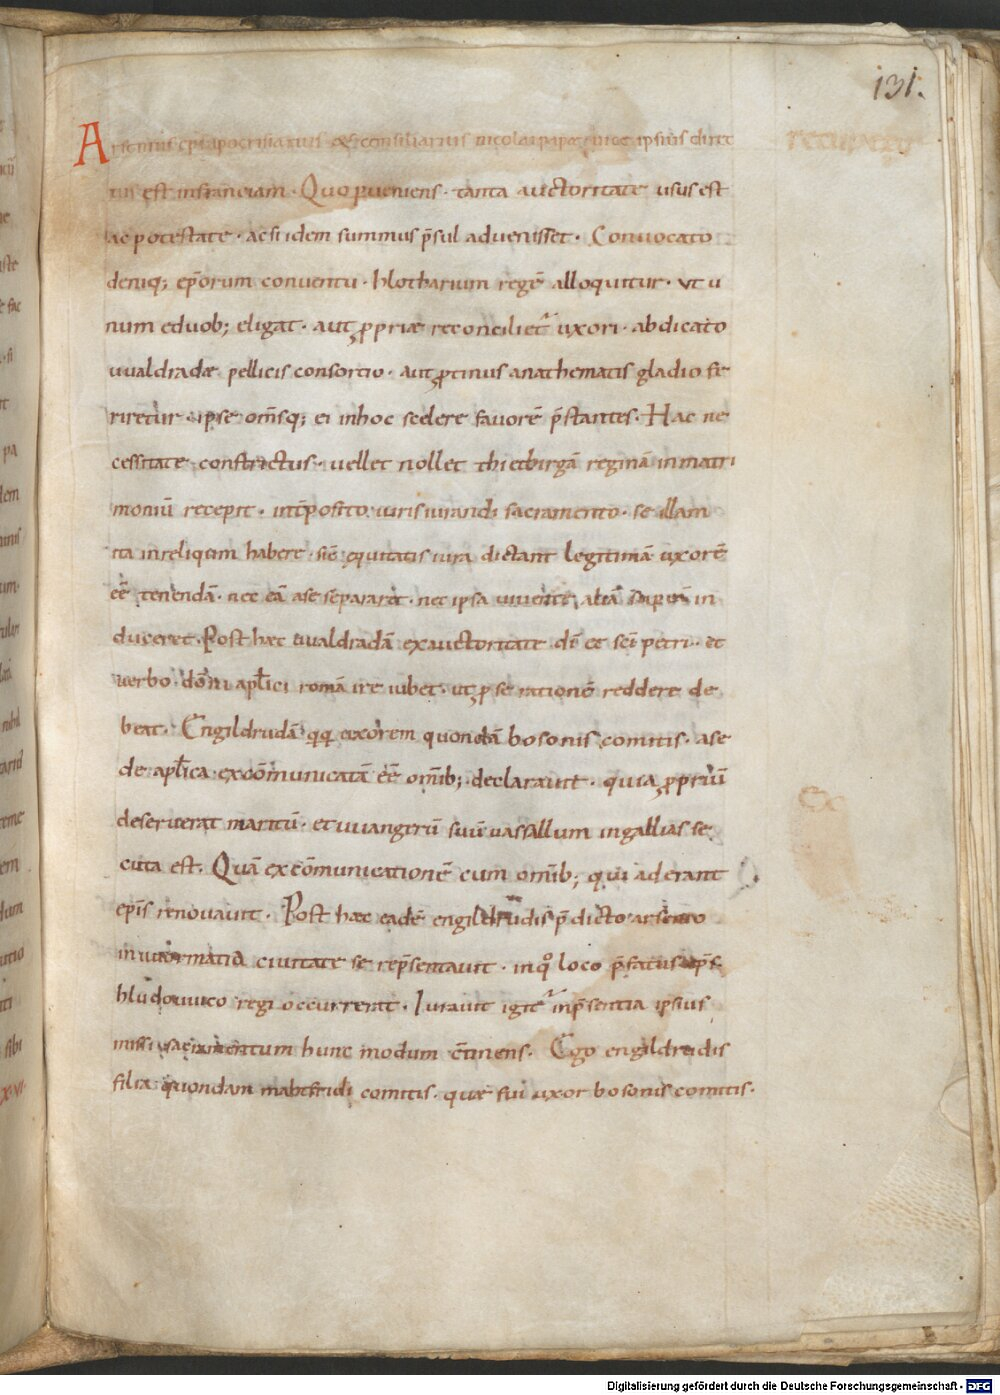 131.
Arsenius ep̄s apocrisiarius & consiliarius nicolai papæ. vice ipsius direc
tus est in franciam. Quo ꝑueniens. tanta auctoritate usus est
ac potestate. acsi idem summus p̄sul advenisset. Convocato
deniq; ep̄orum conventu. hlotharium regē alloquitur. ut u
num eduob; eligat. aut ꝓpriæ reconciliet͛ uxori. abdicato
uualdradæ pellicis consortio. aut ꝓtinus anathematis gladio fe
riretur. ipse om̄sq; ei in hoc scelere favorē p̄stantes. Hac ne
cessitate constrictus. vellet nollet thietbirgā reginā in matri
moniū recepit. int̄posito iuris iurandi sacramento. se illam
ita in reliquum habere. sic̄ equitatis iura dictant legitimā uxorē
eē tenendā. nec eā ase separaret. nec ipsa vivente aliā in
duceret. Post hæc uualdradā ex auctoritate dī et scī petri. et
verbo dōni apl̄ici romā ire iubet. ut ꝓ se rationē reddere de
beat. Engildrudā q̄q; uxorem quondā bosonis comitis. ase
de apl̄ica excōmunicatā eē omīb; declaravit. quia ꝓpriū
deseruerat maritū. et uuangerū suū vassallum in gallias se
cuta est. Quā excōmunicationē cum omīb; qui aderant
ep̄is renovavit. Post hæc eadē engildrudis p̄dicto arsenio
in uuormatia civitate se rep̄sentavit. in qͦ loco p̄fatus ep̄s
hludouuico regi occurrerat. Iuravit igit͛ in p̄sentia ipsius
missi sacramentum hunc modum c̄tinens. Ego engildrudis
filia quondam mahtfridi comitis. quæ fui uxor bosonis comitis.
Digitalisierung gefördert durch die Deutsche Forschungsgemeinschaft - DFG